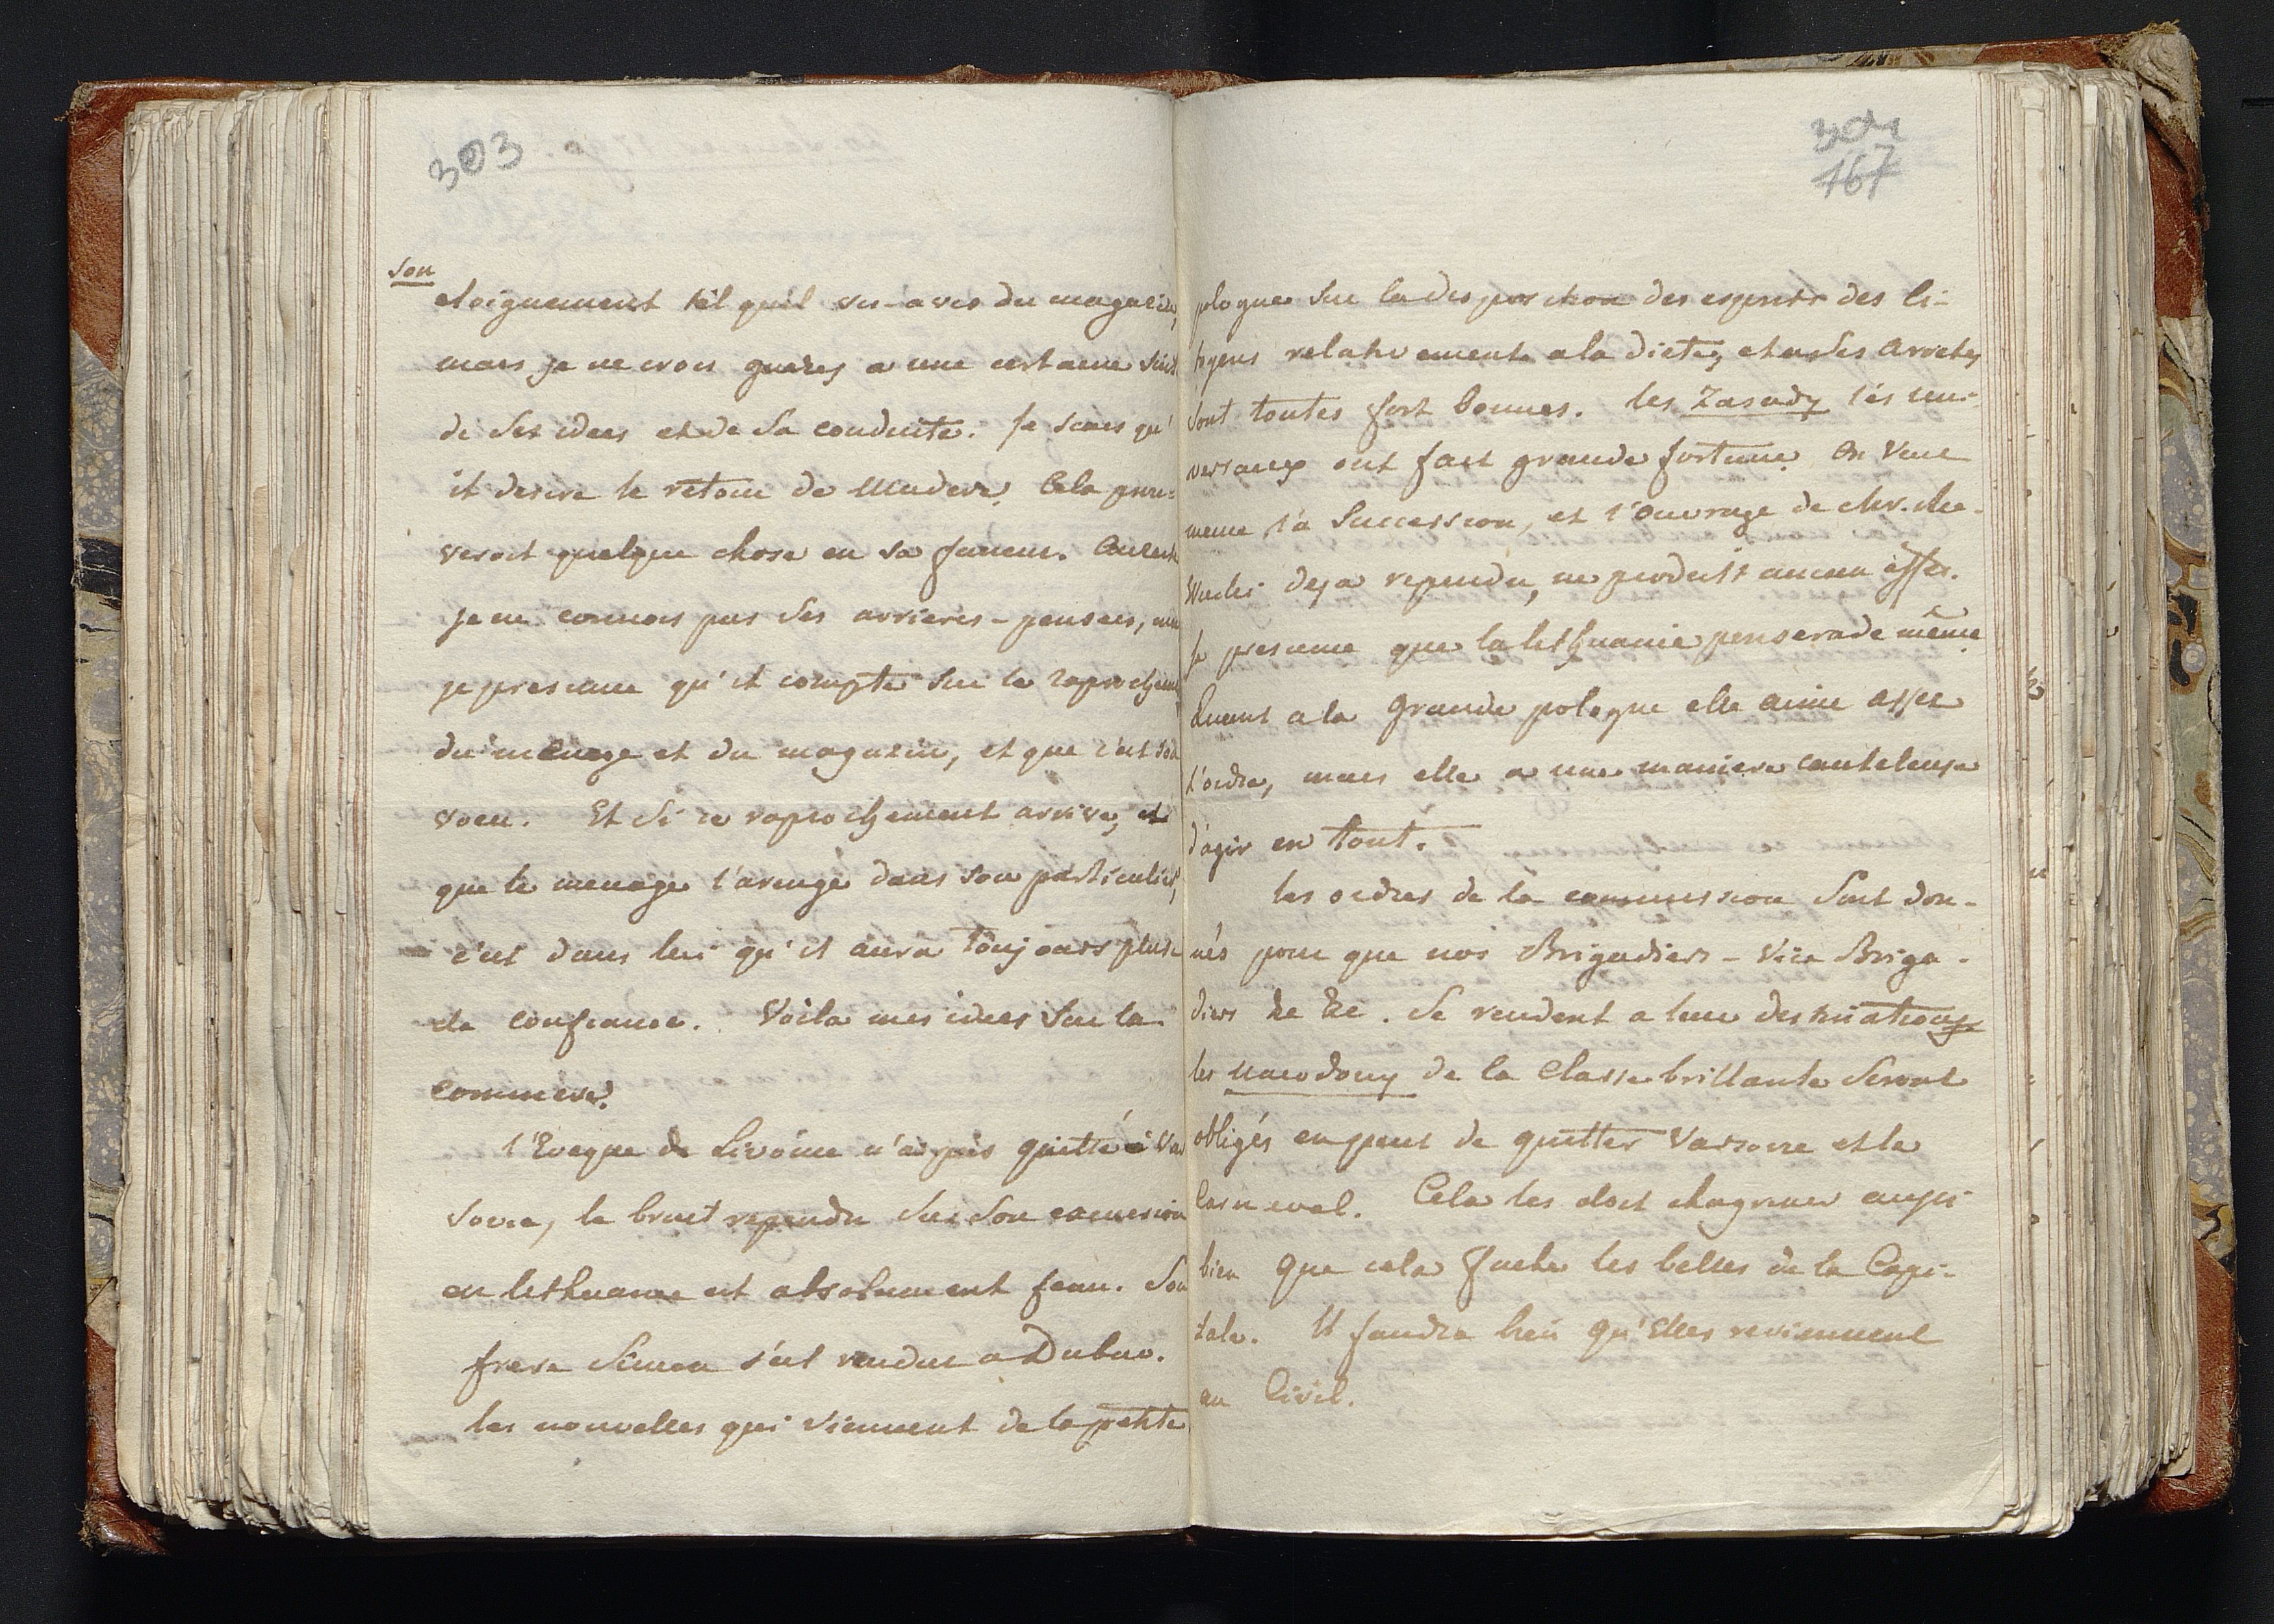 303
son
eloignement tel quel vis-a vis du magazin,
mais je ne crois gueres a une certaine suite
de ses idees et de sa conduite. Je scais qu'
il desire le retour de Madere. Cela prou-
veroit quelque chose en sa faveur. Au reste
je ne connois pas ses arrieres-pensees, mais
je presume qu'il compte sur le raprochement
du menage et du magazin, et que c'est son
voeu. Et si ce raprochement arrive, et
que le menage l'arenge dans son particulier,
c'est dans lui qu'il aura toujours plus
de confiance. Voila mes idees sur la
commere.
l'Eveque de Livonie n'a pas quitté Var
sovie, le bruit rependu sur son
en lethuanie est absolument faux. Son
frere Simon s'est rendu a Dubno.
les nouvelles qui viennent de la petite
304
167
pologne sur la disposition des esprits des ci-
toyens relativement a la diete, et a ses arretes
sont toutes fort bonnes. les Zasady les uni-
versaux ont fait grande fortune. On veut
meme la Succession, et l'ouvrage de
deja rependu, ne produit aucun effet.
Je presume que la lethuanie pensera de même
Quant a la grande pologne elle aime assez
l'ordre, mais elle a une maniere cauteleuse
d'agir en tout.
les ordres de la commission sont don-
nés pour que nos Brigadiers - Vice Briga-
diers &c &c. se rendent a leur destination
les de la Classe brillante seront
obligés en peut de quitter Varsovie et le
Carneval. Cela les doit chagriner aussi
bien que cela fache les belles de la Capi-
tale. Il faudra bien qu'Elles reviennent
au Civil.